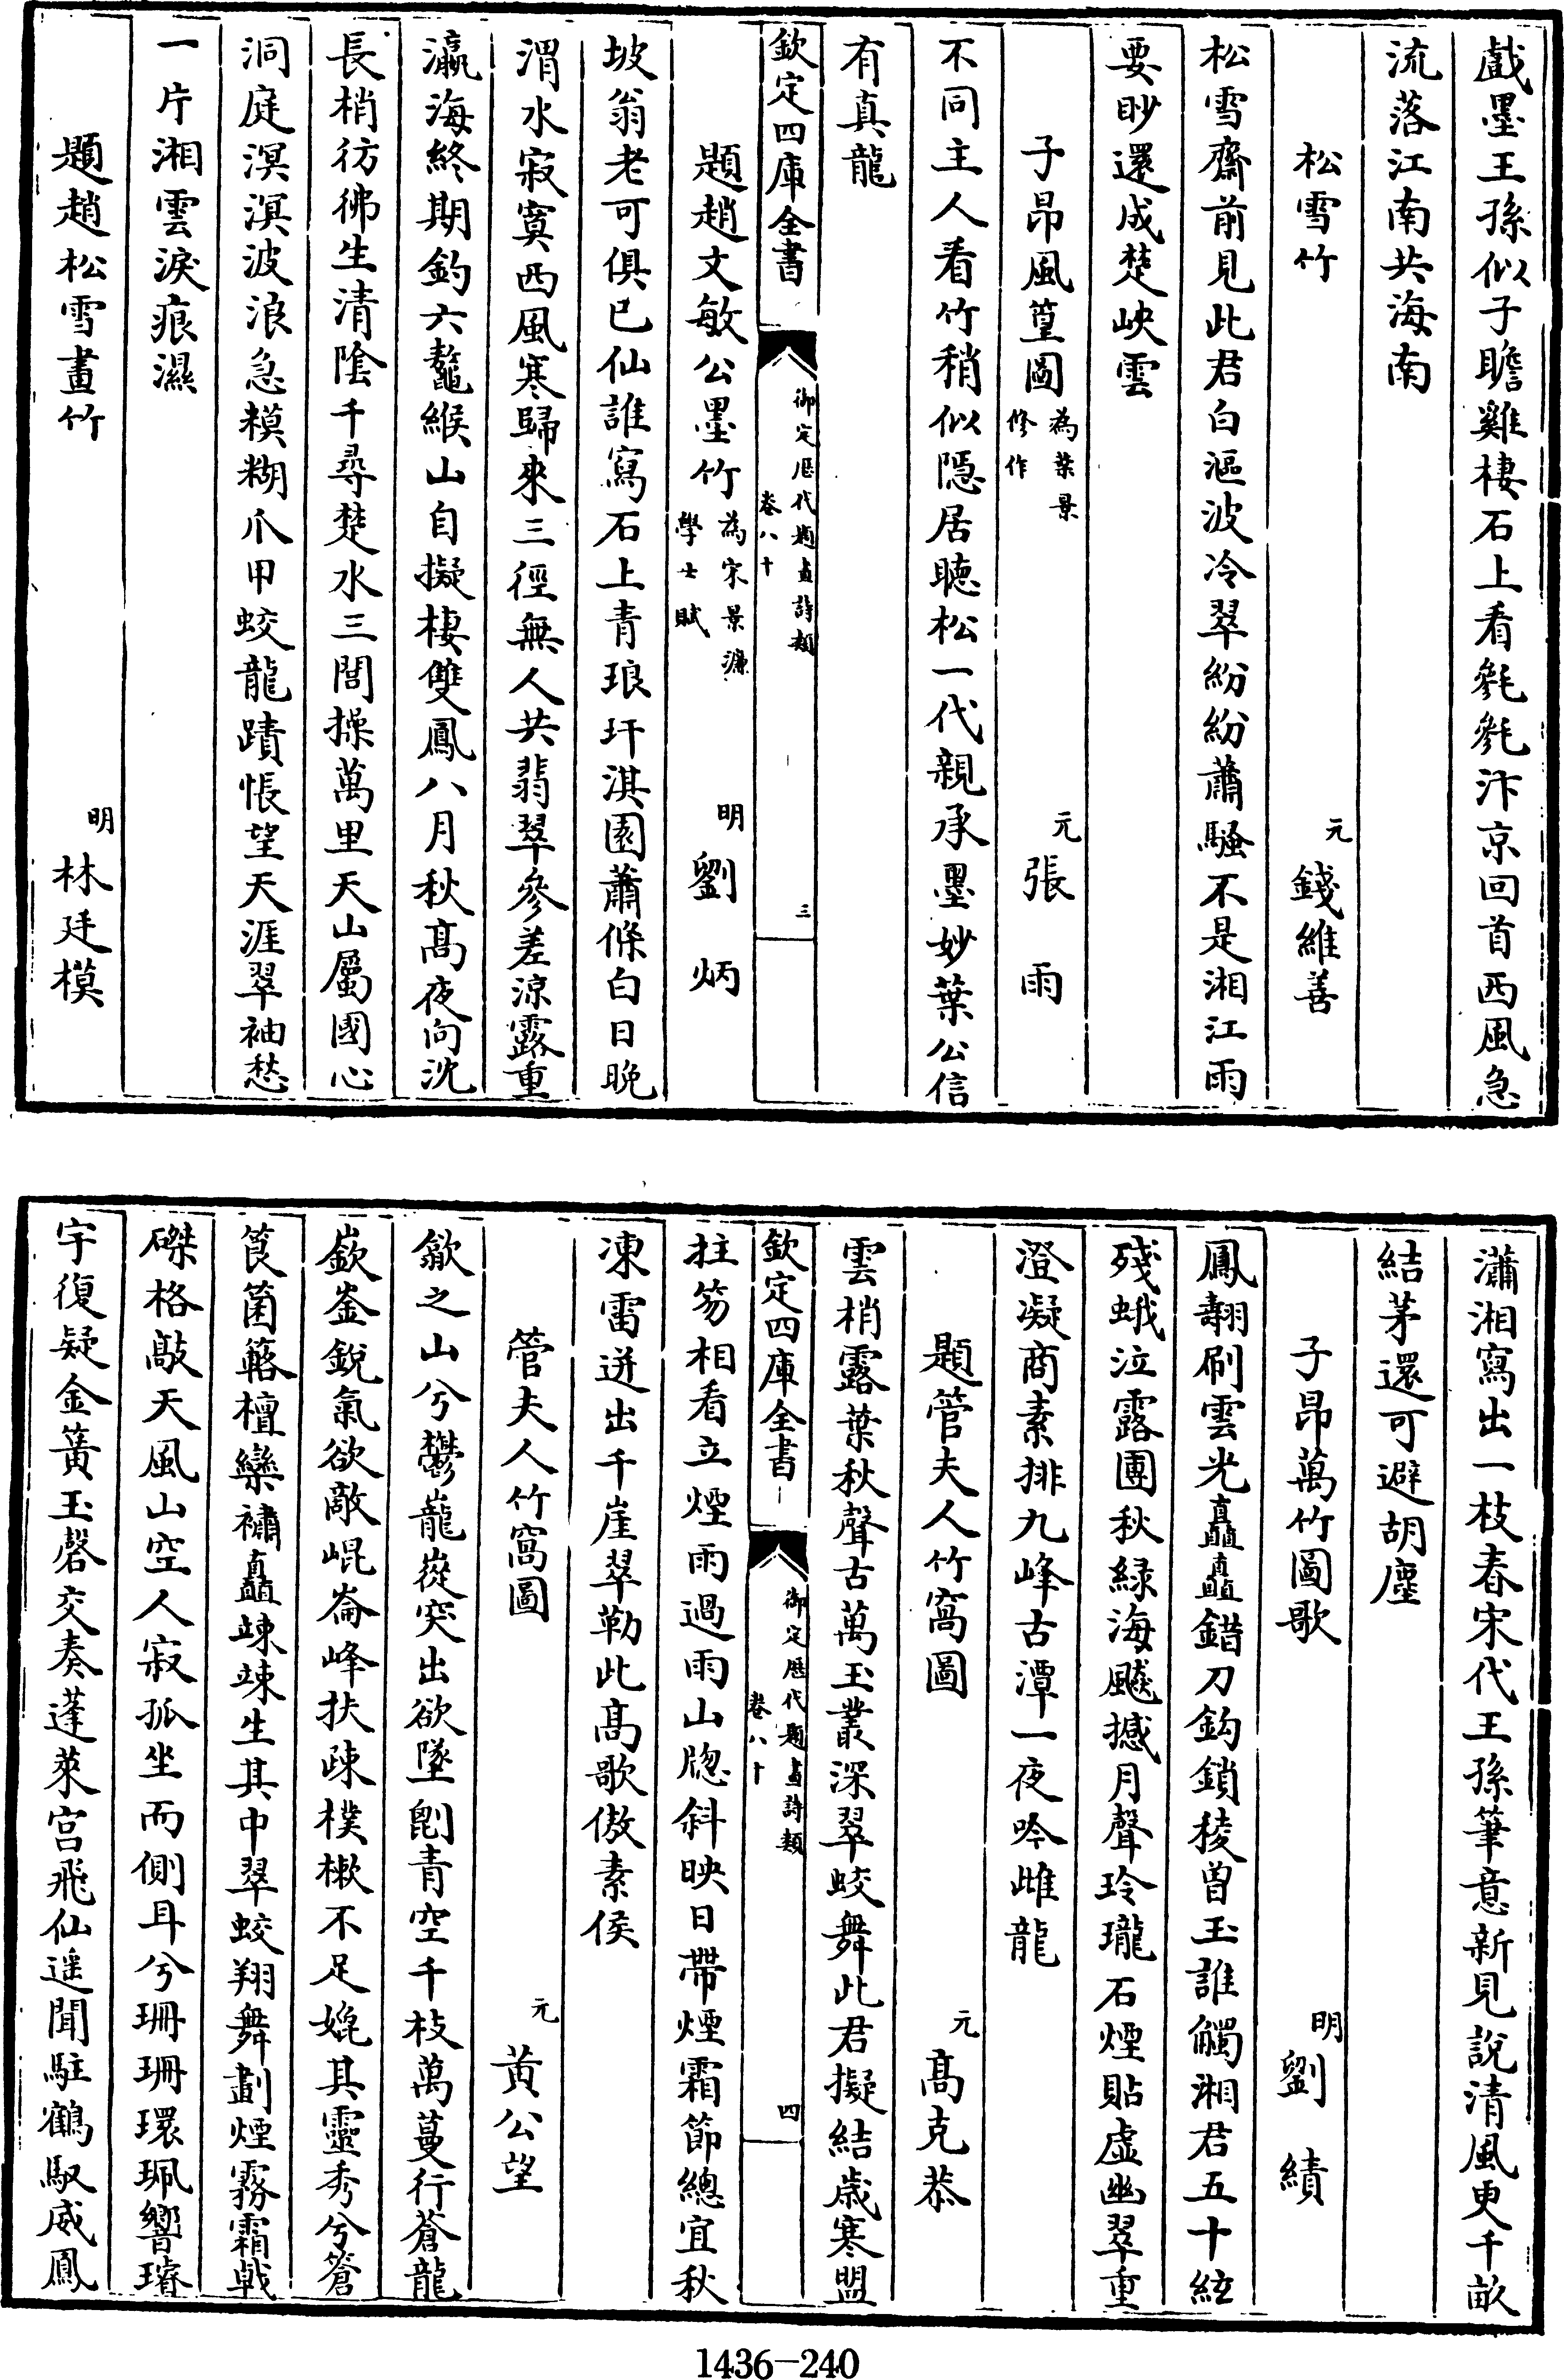 戲墨王孫似子瞻雞棲石上看毿毿汴京回首西風急
流落江南共海南
松雪竹
元
錢維善
松雪齋前見此君白漚波冷翠紛紛蕭騷不是湘江雨
要眇還成楚峽雲
子昂風篁圖
為葉景
修作
元
張雨
不同主人看竹稍似隱居聽松一代親承墨妙葉公信
有真龍
欽定四庫全書
御定歴代題畫詩類
卷八十
三
題趙文敏公墨竹
為宋景濂
學士賦
明
劉炳
坡翁老可俱已仙誰寫石上青琅玕淇園蕭條白日晚
渭水寂寞西風寒歸來三徑無人共翡翠參差涼露重
瀛海終期釣六鼇緱山自擬棲雙鳳八月秋髙夜向沈
長梢彷彿生清陰千尋楚水三閭操萬里天山屬國心
洞庭溟溟波浪急糢糊爪甲蛟龍蹟悵望天涯翠袖愁
一片湘雲淚痕濕
題趙松雪畫竹
明
林廷模
瀟湘寫出一枝春宋代王孫筆意新見說清風更千畝
結茅還可避胡塵
子昂萬竹圖歌
明
劉績
鳳翿刷雲光矗矗錯刀鈎鎖稜曾玉誰觸湘君五十絃
殘蛾泣露團秋緑海飈撼月聲玲瓏石煙貼虛幽翠重
澄凝商素排九峰古潭一夜吟雌龍
題管夫人竹窩圖
元
髙克恭
雲梢露葉秋聲古萬玉叢深翠蛟舞此君擬結歲寒盟
欽定四庫全書
御定歴代題畫詩類
卷八十
四
拄笏相看立煙雨過雨山牎斜映日帶煙霜節總宜秋
凍雷迸出千崖翠勒此髙歌傲素侯
管夫人竹窩圖
元
黃公望
歙之山兮鬱巃嵸突出欲墜劊青空千枝萬蔓行蒼龍
嶔崟銳氣欲敵崐崙峰扶疎樸樕不足媲其靈秀兮篬
筤箘簬檀欒䙰矗竦竦生其中翠蛟翔舞劃煙霧霜戟
磔格敲天風山空人寂孤坐而側耳兮珊珊環珮響璿
宇復疑金簧玉磬交奏蓬萊宫飛仙遥聞駐鶴馭威鳳
1436-240